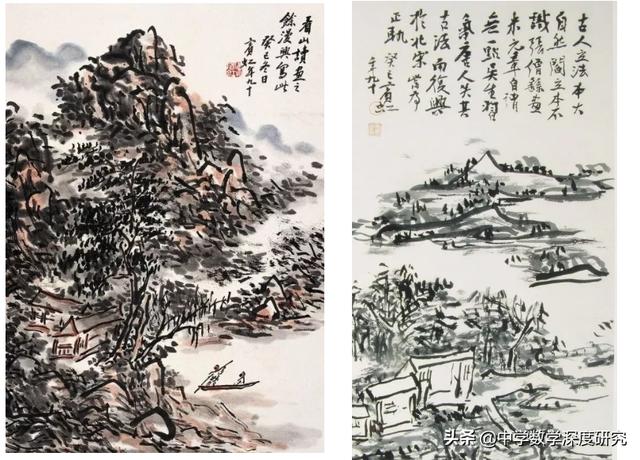 看山讀畫之
餘漫興寫此
癸巳冬日
賓虹年九十
古人立法本大
自然閻立本不
識張僧繇畫
米元章自謂
無一點吳生習
氣唐人失其
古法而復興
於北宋當為
正軌 癸巳賓虹
年九十
头条 @中学数学深度研究